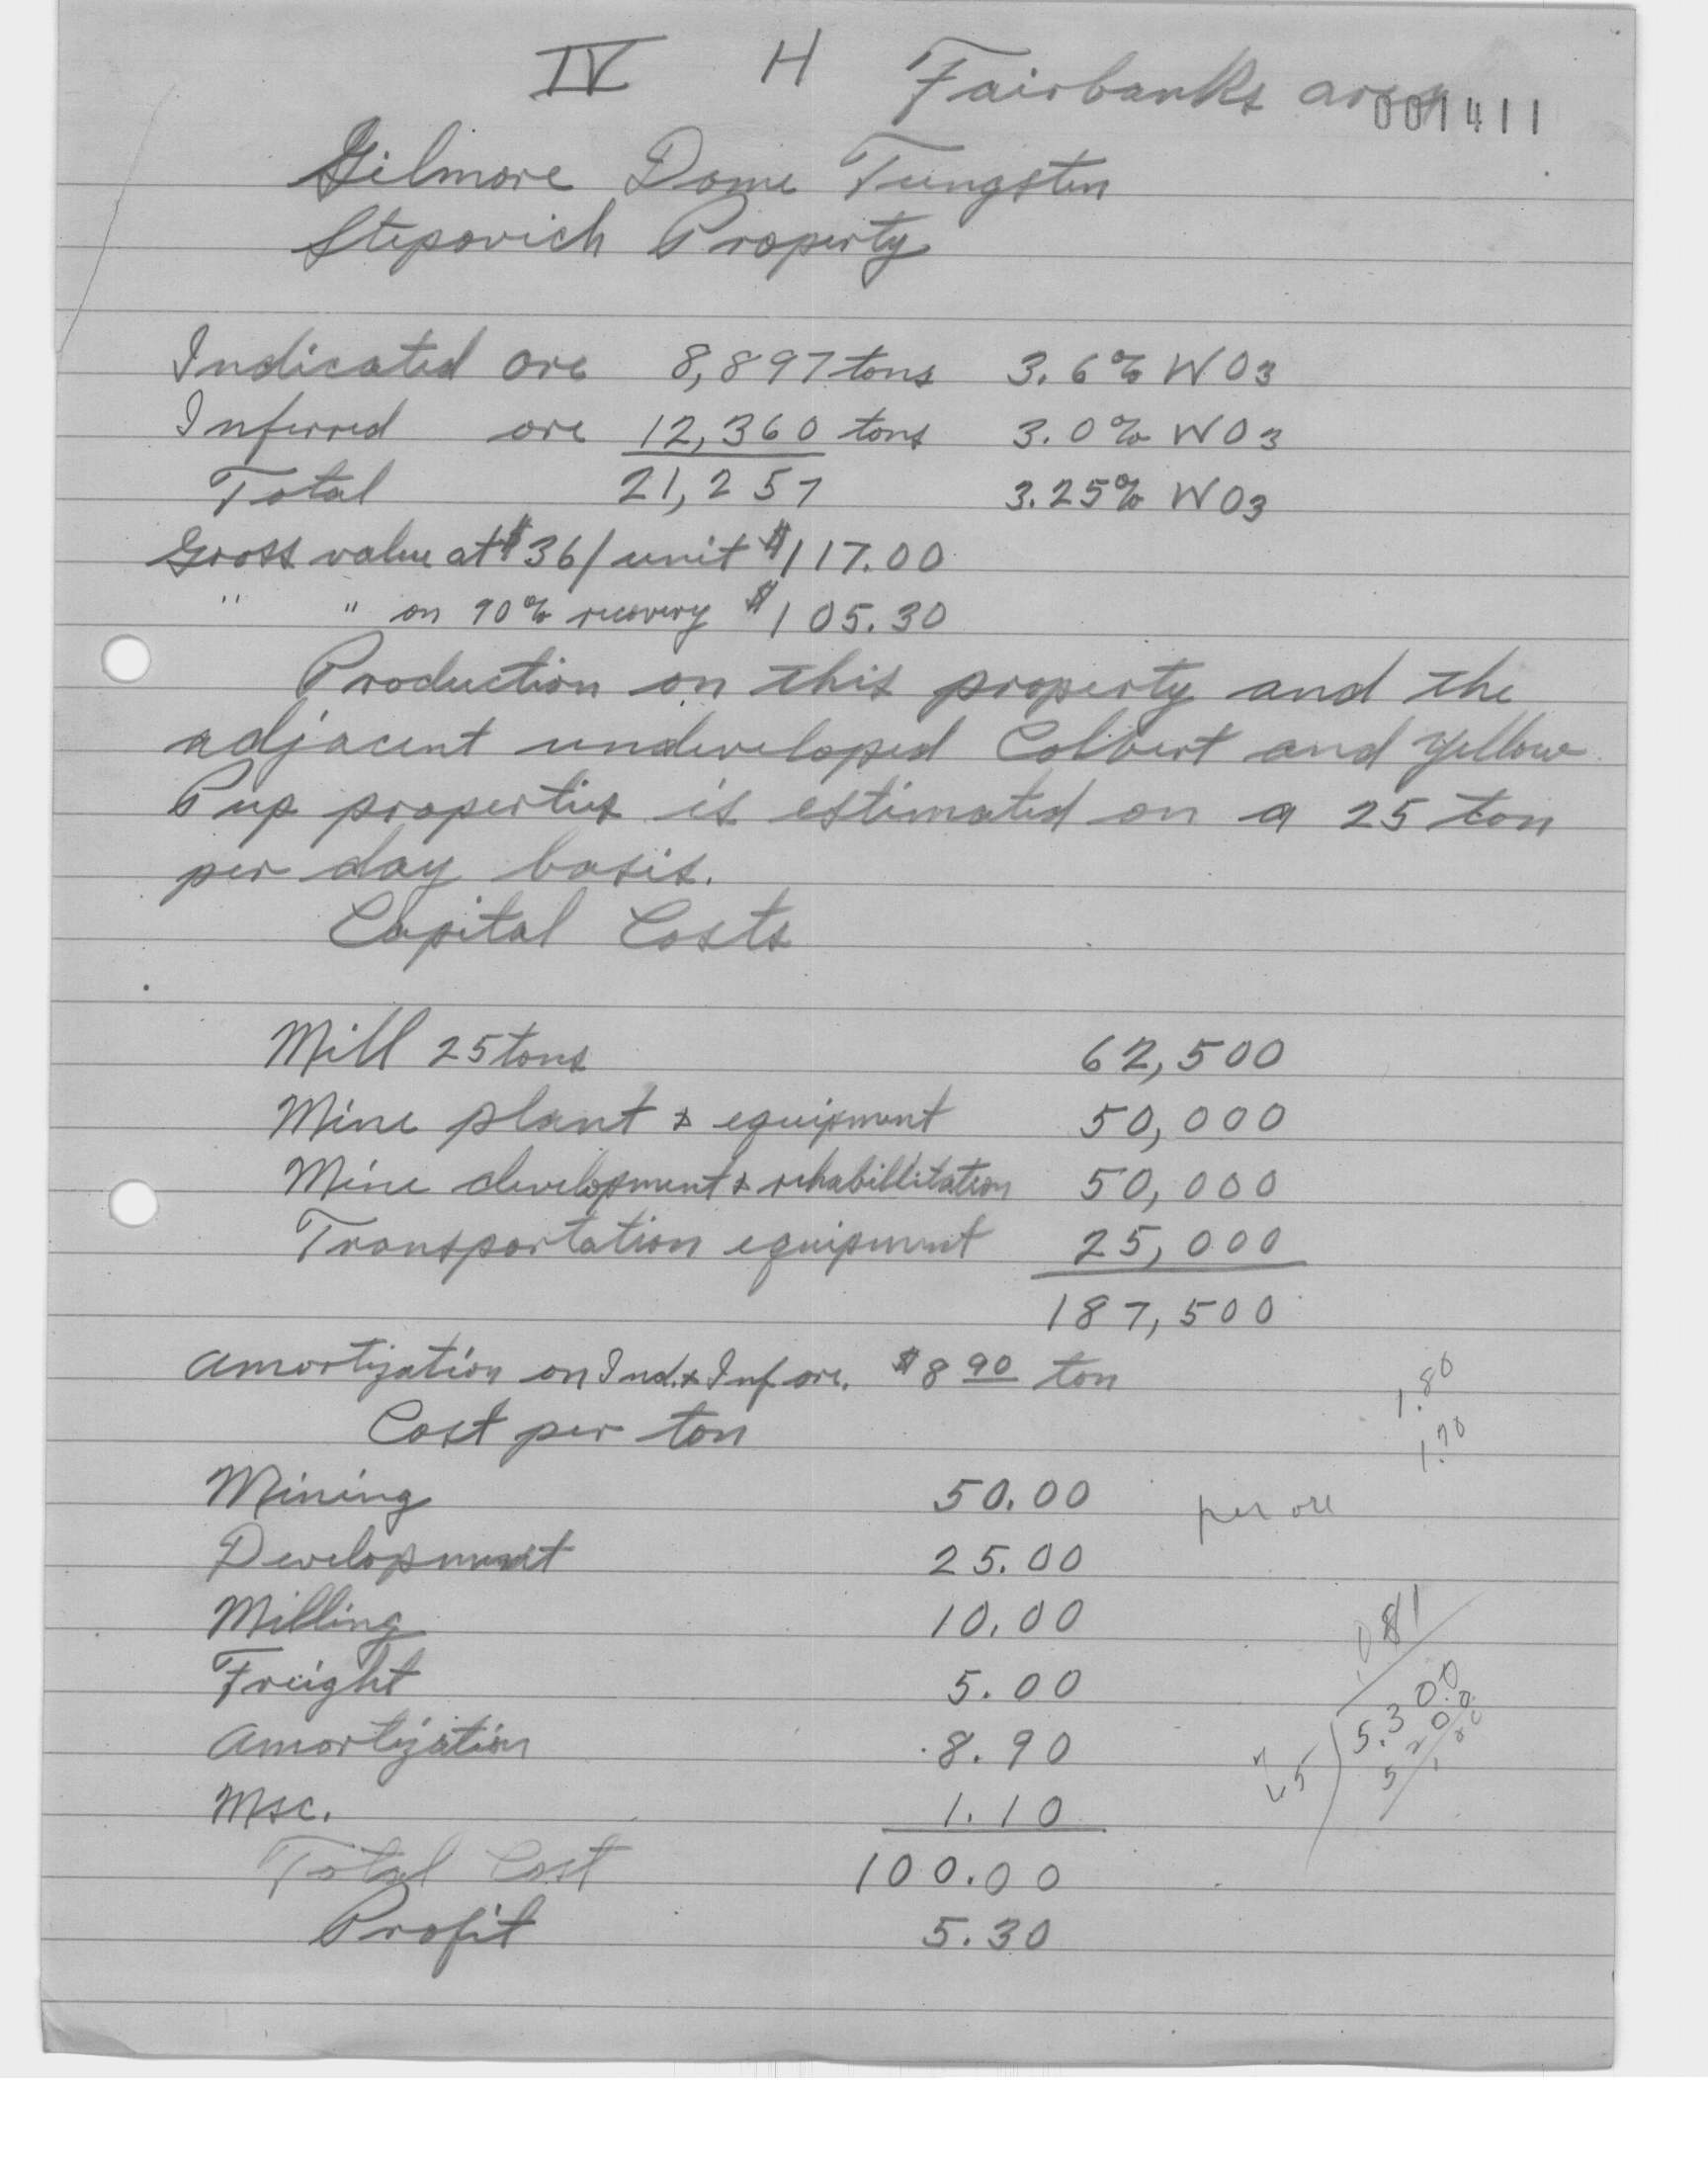 IV H Fairbanks area
001411
Gilmore Dome Tungsten
Stepovich Property
Indicated ore 8,897 tons 3.6% WO3
Inferred ore 12,360 tons 3.0% WO3
Total 21,257 3.25% WO3
Gross value at $36/unit $117.00
" " on 90% recovery $105.30
Production on this property and the
adjacent undeveloped Colbert and Yellow
Pup properties is estimated on a 25 ton
per day basis.
Capital Costs
Mill 25 tons 62,500
Mine plant & equipment 50,000
Mine development & rehabillitation 50,000
Transportation equipment 25,000
187,500
Amortization on Ind. & Inf ore. $8 90 ton
1.80
Cost per ton
1.70
Mining 50.00 per ore
Development 25.00
Milling 10.00
.081
Freight 5.00
5.300
Amortization 8.90
5 2 0 0
Msc. 1.10
Total Cost 100.00
Profit 5.30